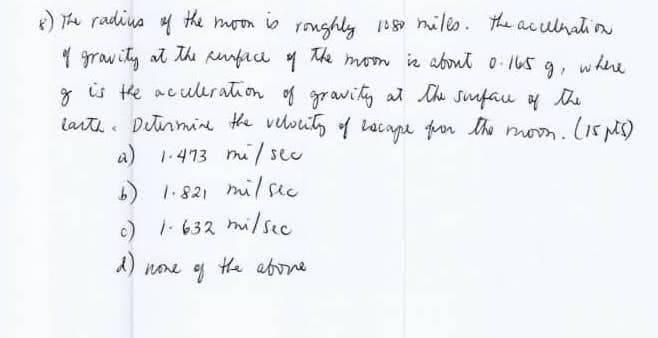 8) The radius of the moon is roughly 1080 miles. The acceleration
of gravity at the surface of the moon is about 0.165 g, where
g is the acceleration of gravity at the surface of the
earth. Determine the velocity of escape for the moon. (15 pts)
a) 1.473 mi/sec
b) 1.821 mi/sec
c) 1.632 mi/sec
d) none of the above